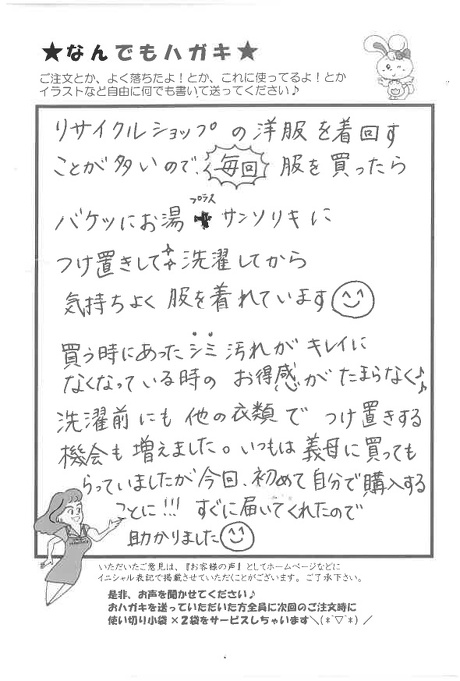 ★なんでもハガキ★
ご注文とか、よく落ちたよ！とか、これに使ってるよ！とか
イラストなど自由に何でも書いて送ってください♪
リサイクルショップの洋服を着回す
ことが多いので、毎回 服を買ったら
プラス
バケツにお湯＋サンソリキに
つけ置きして洗濯してから
気持ちよく服を着れています
買う時にあったシミ汚れがキレイに
なくなっている時の お得感がたまらなく♪
洗濯前にも他の衣類でつけ置きする
機会も増えました。いつもは義母に買っても
らっていましたが今回、初めて自分で購入する
ことに!!! すぐに届いてくれたので
助かりました
いただいたご意見は、『お客様の声』としてホームページなどに
イニシャル表記で掲載させていただくことがございます。ご了承下さい。
是非、お声を聞かせてください♪
おハガキを送っていただいた方全員に次回のご注文時に
使い切り小袋×２袋をサービスしちゃいます＼(*ﾟ▽ﾟ*)／